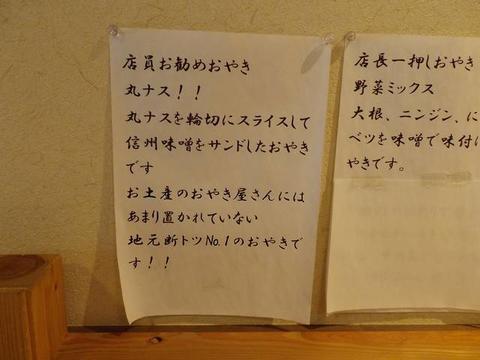 店員お勧めおやき
丸ナス！！
丸ナスを輪切にスライスして
信州味噌をサンドしたおやき
です
お土産のおやき屋さんには
あまり置かれていない
地元断トツNo.1のおやきで
す！！
店長一押しおやき
野菜ミックス
大根、ニンジン、に
ベツを味噌で味付け
やきです。